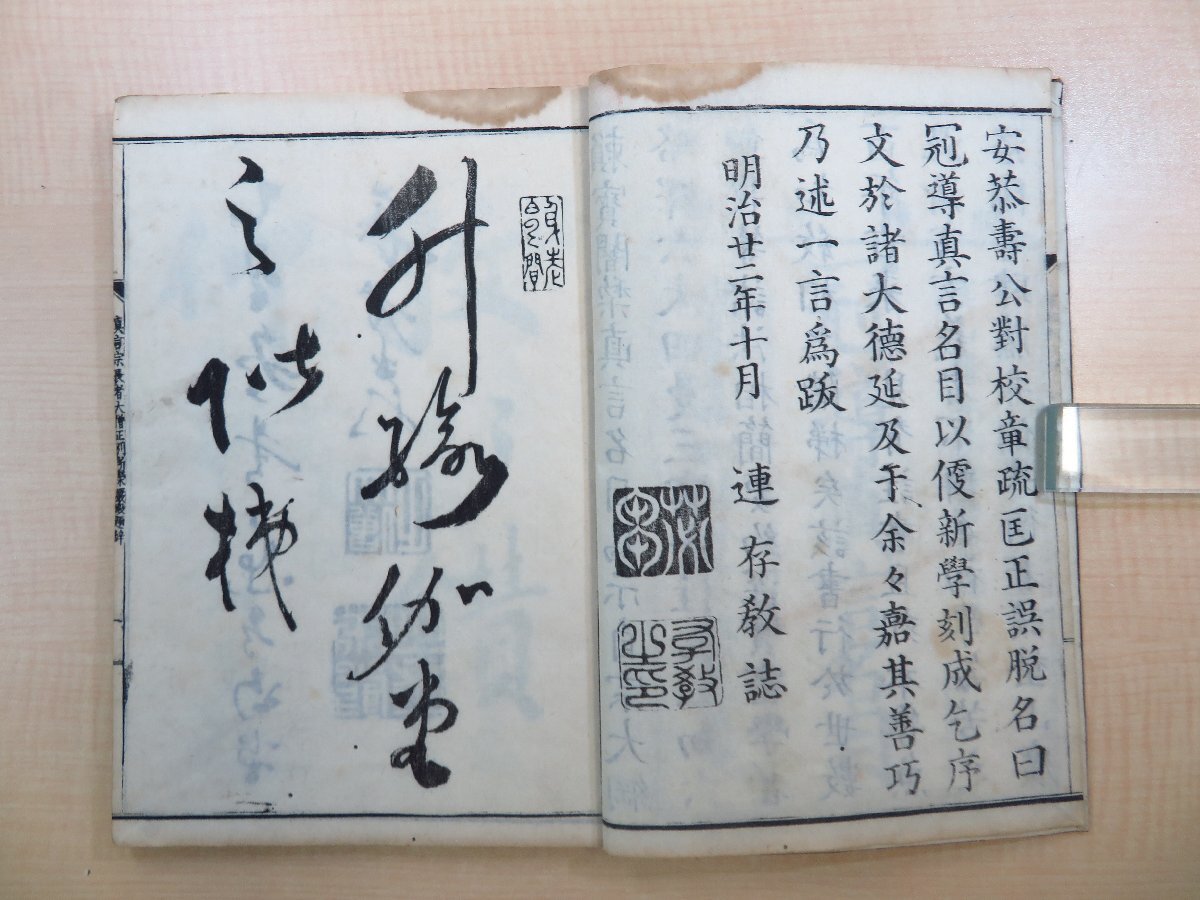 安恭壽公對校章疏匡正誤脱名曰
冠導真言名目以便新學刻成乞序
文於諸大德延及于余々嘉其善巧
乃述一言爲跋
明治廿二年十月 連存教誌
存教
之印
升瑜伽堂
之階梯